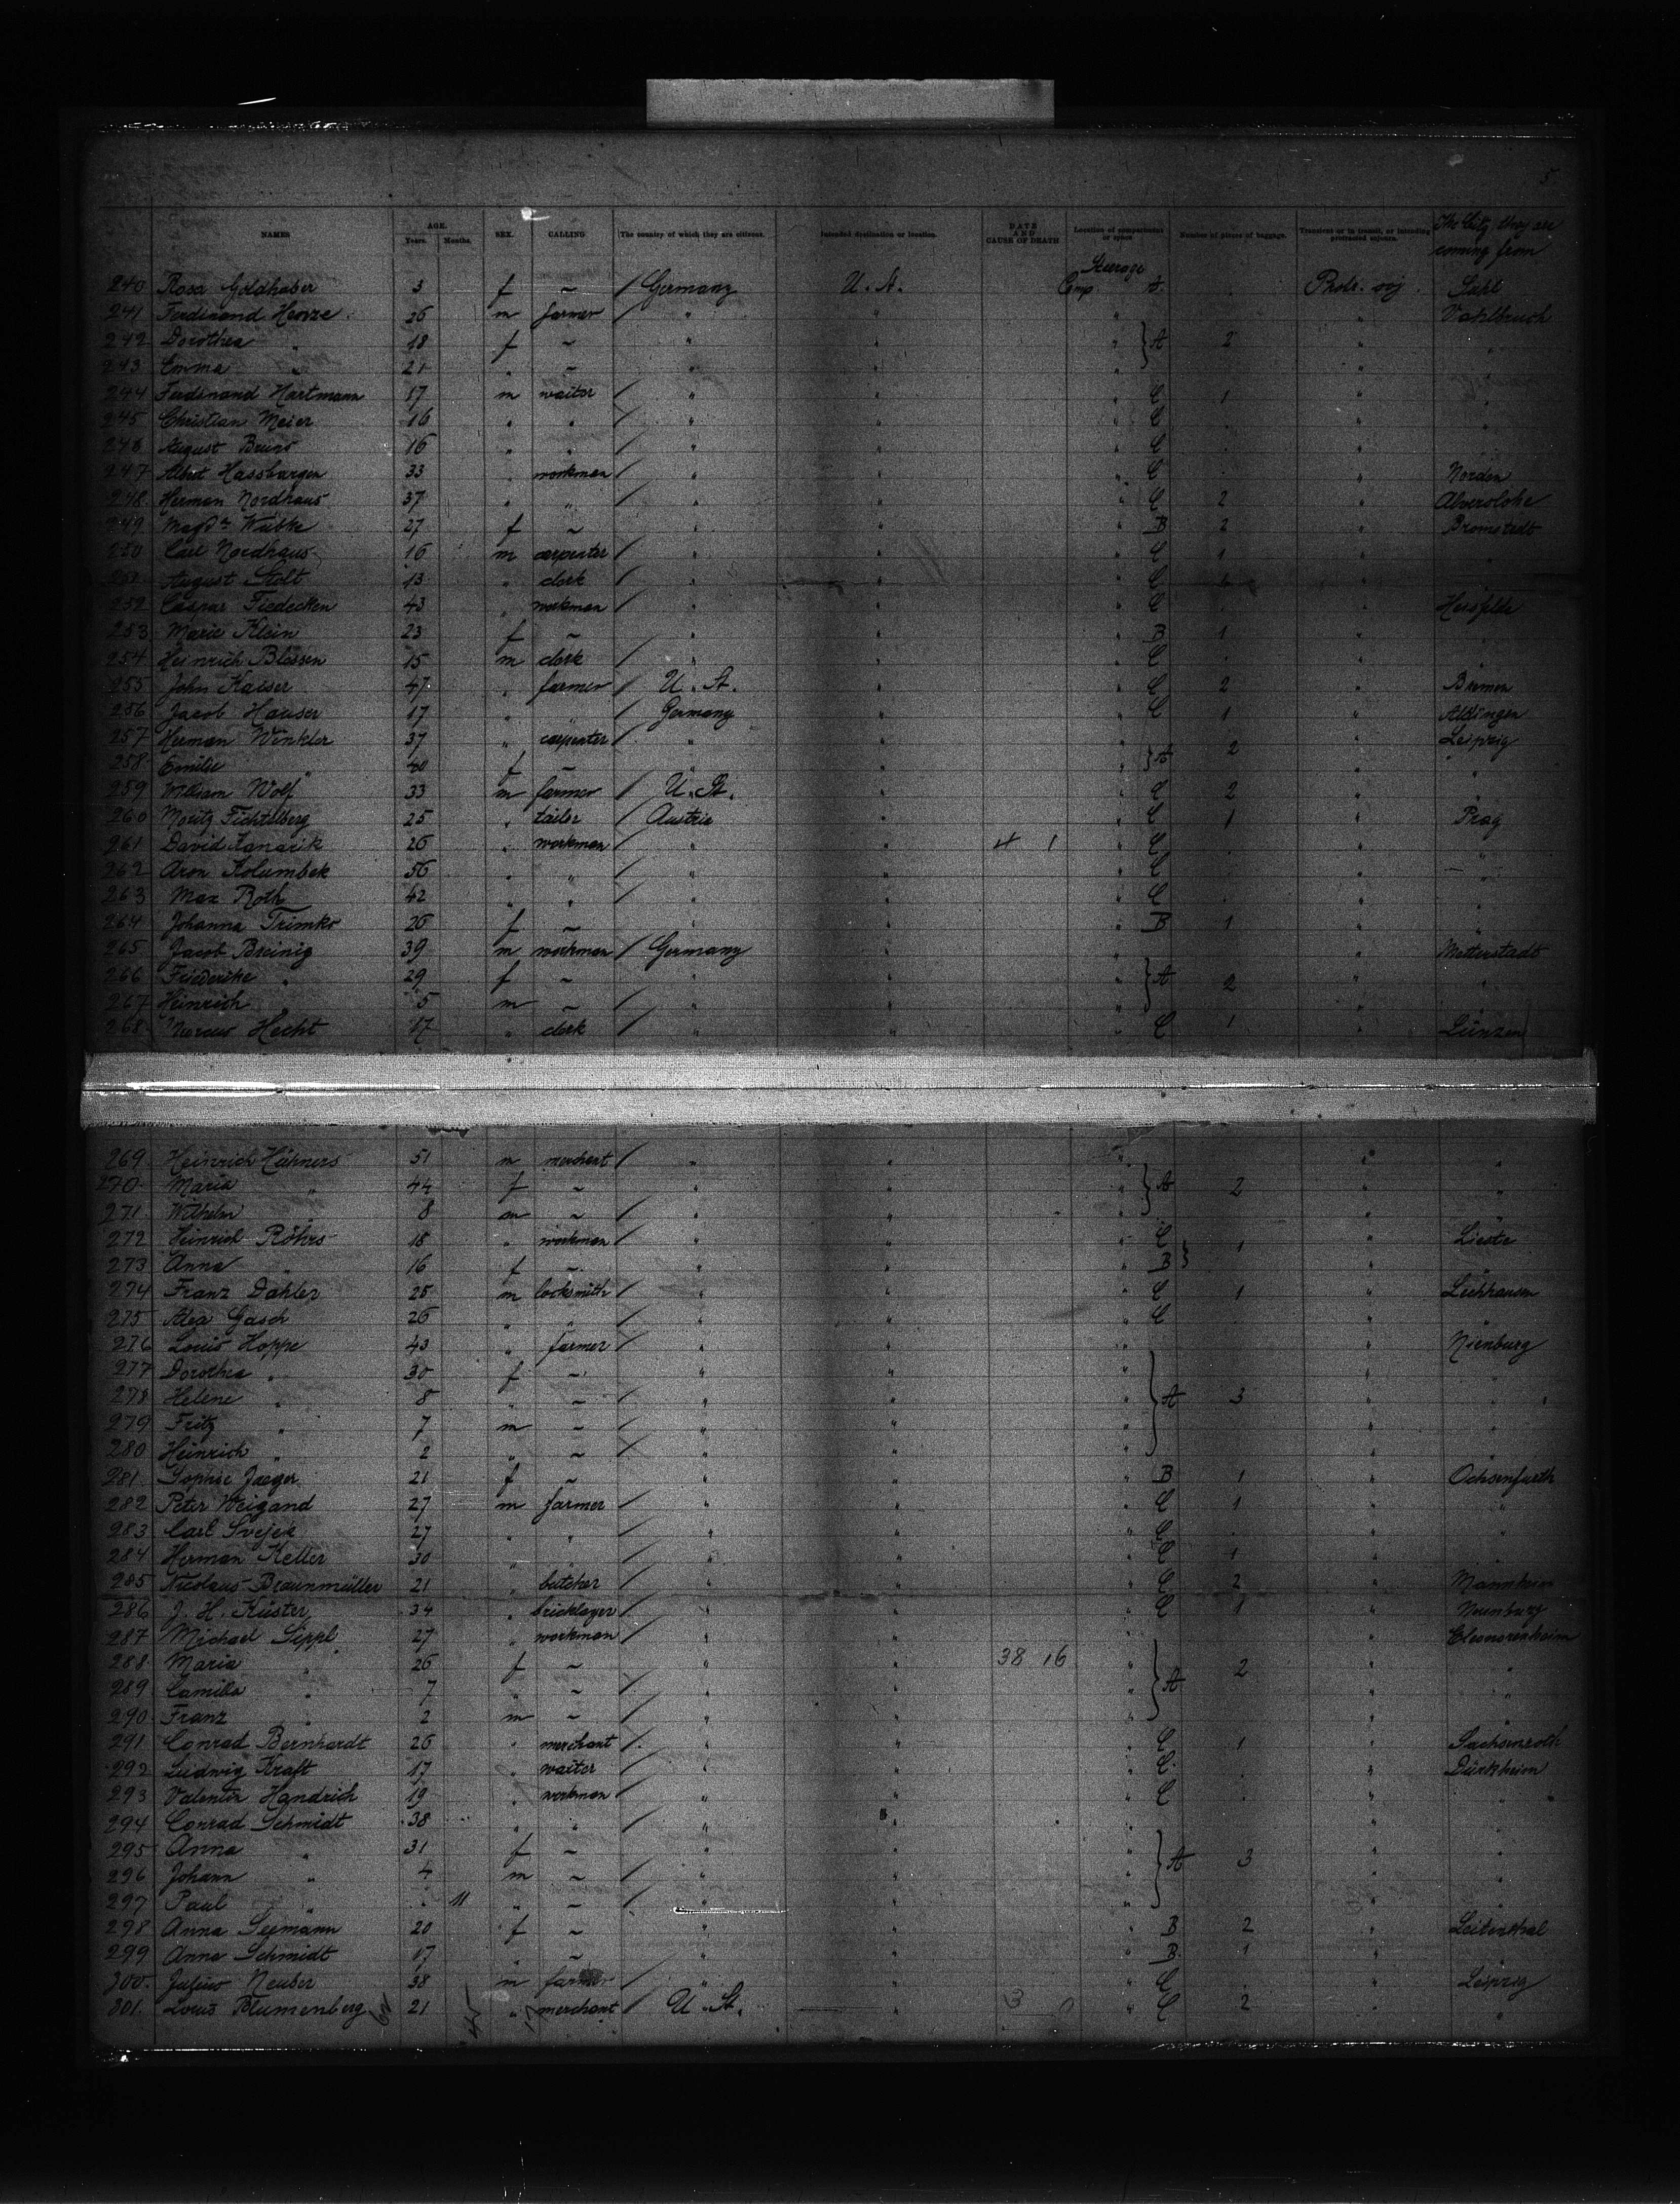 5
NAMES AGE. Years. Months. SEX. CALLING The country of which they are citizens. Intended destination or location. DATE AND CAUSE OF DEATH Location of compartment or space Number of pieces of baggage. Transient or in transit, or intending protracted sojourn. The City they are coming from
240 Rosa Goldhaber 3 f ~ / Germany U. St. Steerage Comp. A. Protr. soj. Suhl
241 Ferdinand Henze 26 m farmer / " " " " Vahlbruch
242 Dorothea " 18 f ~ " " " } A 2 " "
243 Emma " 21 " ~ " " " " "
244 Ferdinand Hartmann 17 m waiter / " " " C 1 " "
245 Christian Meier 16 " " / " " " C . " "
246 August Bruns 16 " " / " " " C . " "
247 Albert Hassbargen 33 " workman / " " " C . " Norden
248 Herman Nordhaus 37 " " / " " " C 2 " Alverslohe
249 Magd. Wubke 27 f ~ " " " B 2 " Bramstedt
250 Carl Nordhaus 16 m carpenter / " " " C 1 " "
251 August Stolt 13 " clerk / " " " C 1 " "
252 Caspar Fiedecken 43 " workman / " " " C . " Hersfelde
253 Marie Klein 23 f ~ " " " B 1 " "
254 Heinrich Blessen 15 m clerk / " " " C . " "
255 John Kaiser 47 " farmer / U. St. " " C 2 " Bremen
256 Jacob Hauser 17 " " / Germany " " C 1 " Aldingen
257 Herman Winkler 37 " carpenter / " " " } A 2 " Leipzig
258 Emilie " 40 f ~ " " " " "
259 William Wolf 33 m farmer / U. St. " " C 2 " "
260 Moritz Fichtelberg 25 " tailor / Austria " " C 1 " Prag
261 David Kanarik 26 " workman / " " 4 1 " C . " "
262 Aron Kolumbek 56 " " / " " " C . " "
263 Max Roth 42 " " / " " " C . " "
264 Johanna Trimko 26 f ~ " " " B 1 " "
265 Jacob Breinig 39 m workman / Germany " " " Mutterstadt
266 Friederike " 29 f ~ " " " } A 2 " "
267 Heinrich " 5 m ~ / " " " " "
268 Marcus Hecht 17 " clerk / " " " C 1 " Lünzen
269 Heinrich Hühners 51 m merchant / " " " " "
270 Maria " 44 f ~ " " " } A 2 " "
271 Wilhelm " 8 m ~ / " " " " "
272 Heinrich Röhrs 18 " workman / " " " C } 1 " Lieste
273 Anna " 16 f ~ " " " B " "
274 Franz Dahler 25 m locksmith / " " " C 1 " Lechhausen
275 Alex Gasch 26 " " / " " " C . " "
276 Louis Hoppe 43 " farmer / " " " " Nienburg
277 Dorothea " 30 f ~ " " " " "
278 Helene " 8 " ~ / " " " } A 3 " "
279 Fritz " 7 m ~ / " " " " "
280 Heinrich " 2 " ~ / " " " " "
281 Sophie Jaeger 21 f ~ " " " B 1 " Ochsenfurth
282 Peter Weigand 27 m farmer / " " " C 1 " "
283 Carl Svejek 27 " " / " " " C . " "
284 Herman Keller 30 " " / " " " C 1 " "
285 Nicolaus Braunmüller 21 " butcher / " " " C 2 " Mannheim
286 J. H. Küster 34 " bricklayer / " " " C 1 " Nienburg
287 Michael Sippl 27 " workman / " " " " Eleonorenheim
288 Maria " 26 f ~ " " 38 16 " } A 2 " "
289 Camilla " 7 " ~ / " " " " "
290 Franz " 2 m ~ / " " " " "
291 Conrad Bernhardt 26 " merchant / " " " C 1 " Sachsenroth
292 Ludwig Kraft 17 " waiter / " " " C . " Dürkheim
293 Valentin Handrich 19 " workman / " " " C . " "
294 Conrad Schmidt 38 " " / " " " " "
295 Anna " 31 f ~ " " " } A 3 " "
296 Johann " 4 m ~ / " " " " "
297 Paul " . 11 " ~ / " " " " "
298 Anna Seemann 20 f ~ " " " B 2 " Leitenthal
299 Anna Schmidt 17 " ~ " " " B 1 " "
300 Julius Neuber 38 m farmer / " " " C . " Leipzig
301. Louis Blumenberg 21 " merchant / U. St. " 3 0 " C 2 " "